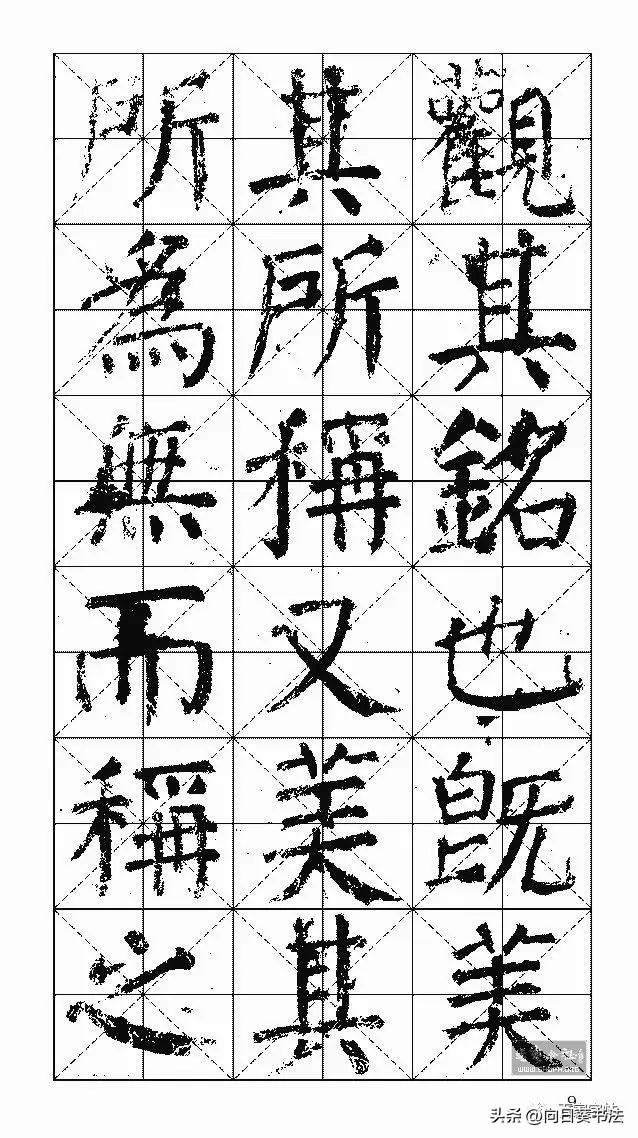 觀其銘也既美
其所稱又美其
所為無而稱之
9
头条 @向日葵书法